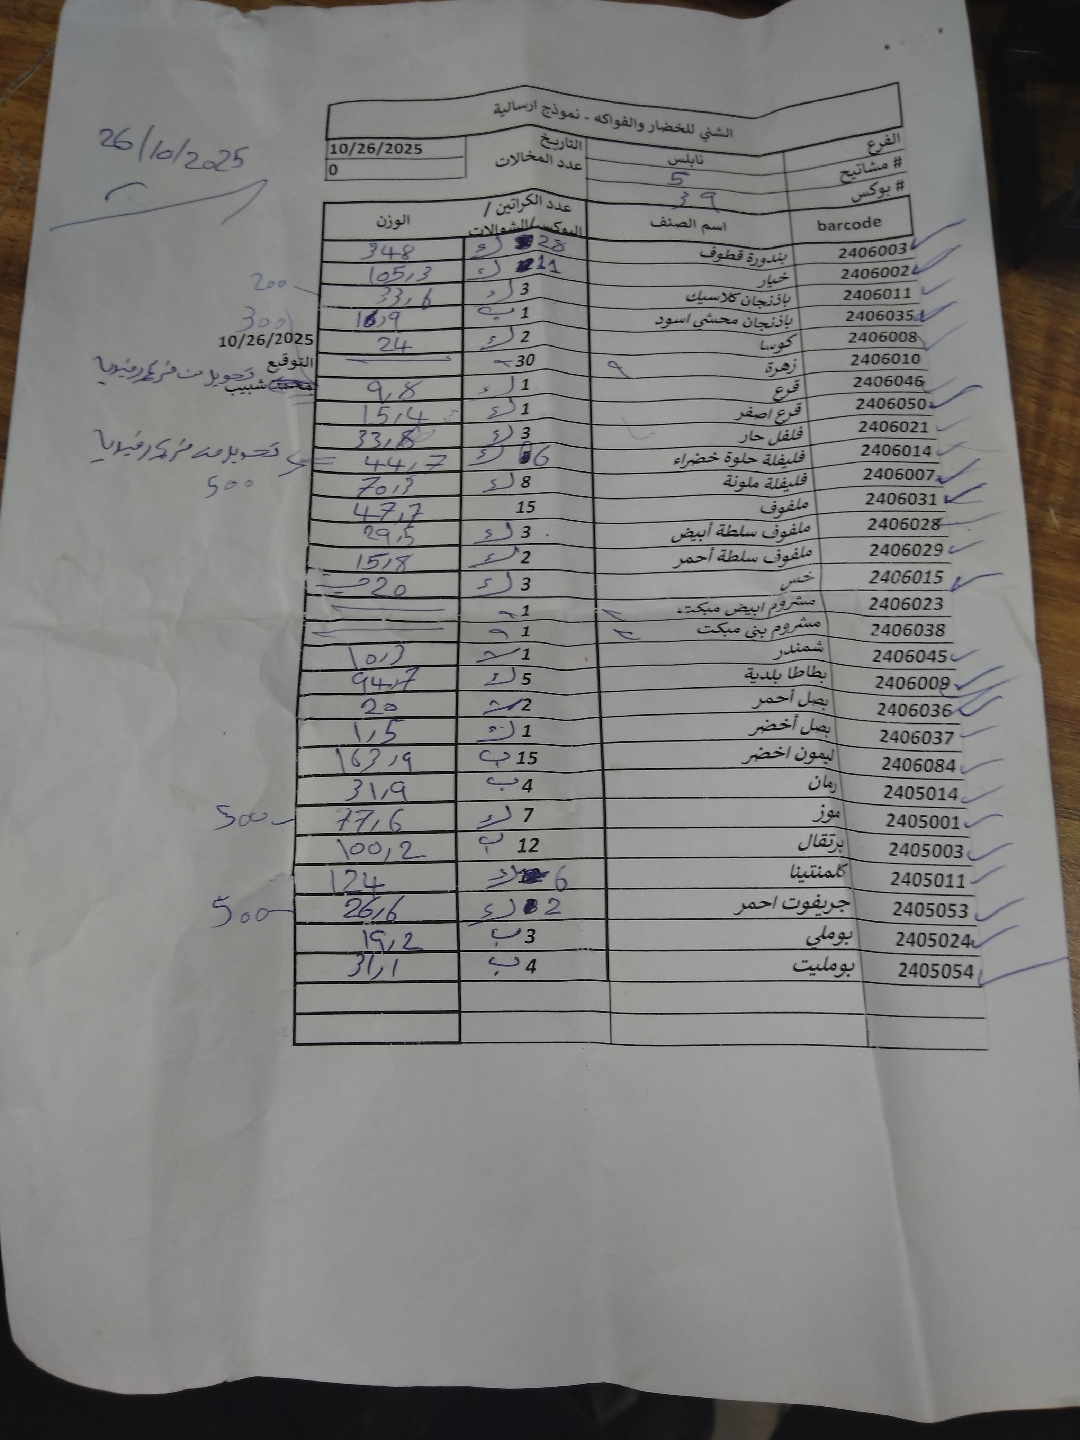 26/10/2025
الشني للخضار والفواكه - نموذج ارسالية
الفرع نابلس التاريخ 10/26/2025
# مشاتيح 5 عدد المخالات 0
# بوكس 39
barcode اسم الصنف عدد الكراتين / البوكس/الشوالات الوزن
2406003 بندورة قطوف 28 ك 348
2406002 خيار 11 ك 105,3
2406011 باذنجان كلاسيك 3 ك 33,6 200
2406035 باذنجان محشي اسود 1 ب 16,9 300
2406008 كوسا 2 ك 24 10/26/2025
2406010 زهرة 30 التوقيع
2406046 قرع 1 ك 9,8 شبيب
2406050 قرع اصفر 1 ك 15,4
2406021 فلفل حار 3 ك 33,8
2406014 فليفلة حلوة خضراء 6 ك 44,7 تحويل من
2406007 فليفلة ملونة 8 ك 70,3 500
2406031 ملفوف 15 47,7
2406028 ملفوف سلطة أبيض 3 ك 29,5
2406029 ملفوف سلطة أحمر 2 ك 15,8
2406015 خس 3 ك 20
2406023 مشروم ابيض مبكت 1
2406038 مشروم بني مبكت 1
2406045 شمندر 1 10,3
2406009 بطاطا بلدية 5 ك 94,7
2406036 بصل أحمر 2 20
2406037 بصل أخضر 1 ك 1,5
2406084 ليمون اخضر 15 ب 163,9
2405014 رمان 4 ب 31,9
2405001 موز 7 ك 77,6 500
2405003 برتقال 12 ب 100,2
2405011 كلمنتينا 6 124
2405053 جريفوت احمر 2 ك 26,6 500
2405024 بوملي 3 ب 19,2
2405054 بومليت 4 ب 31,1